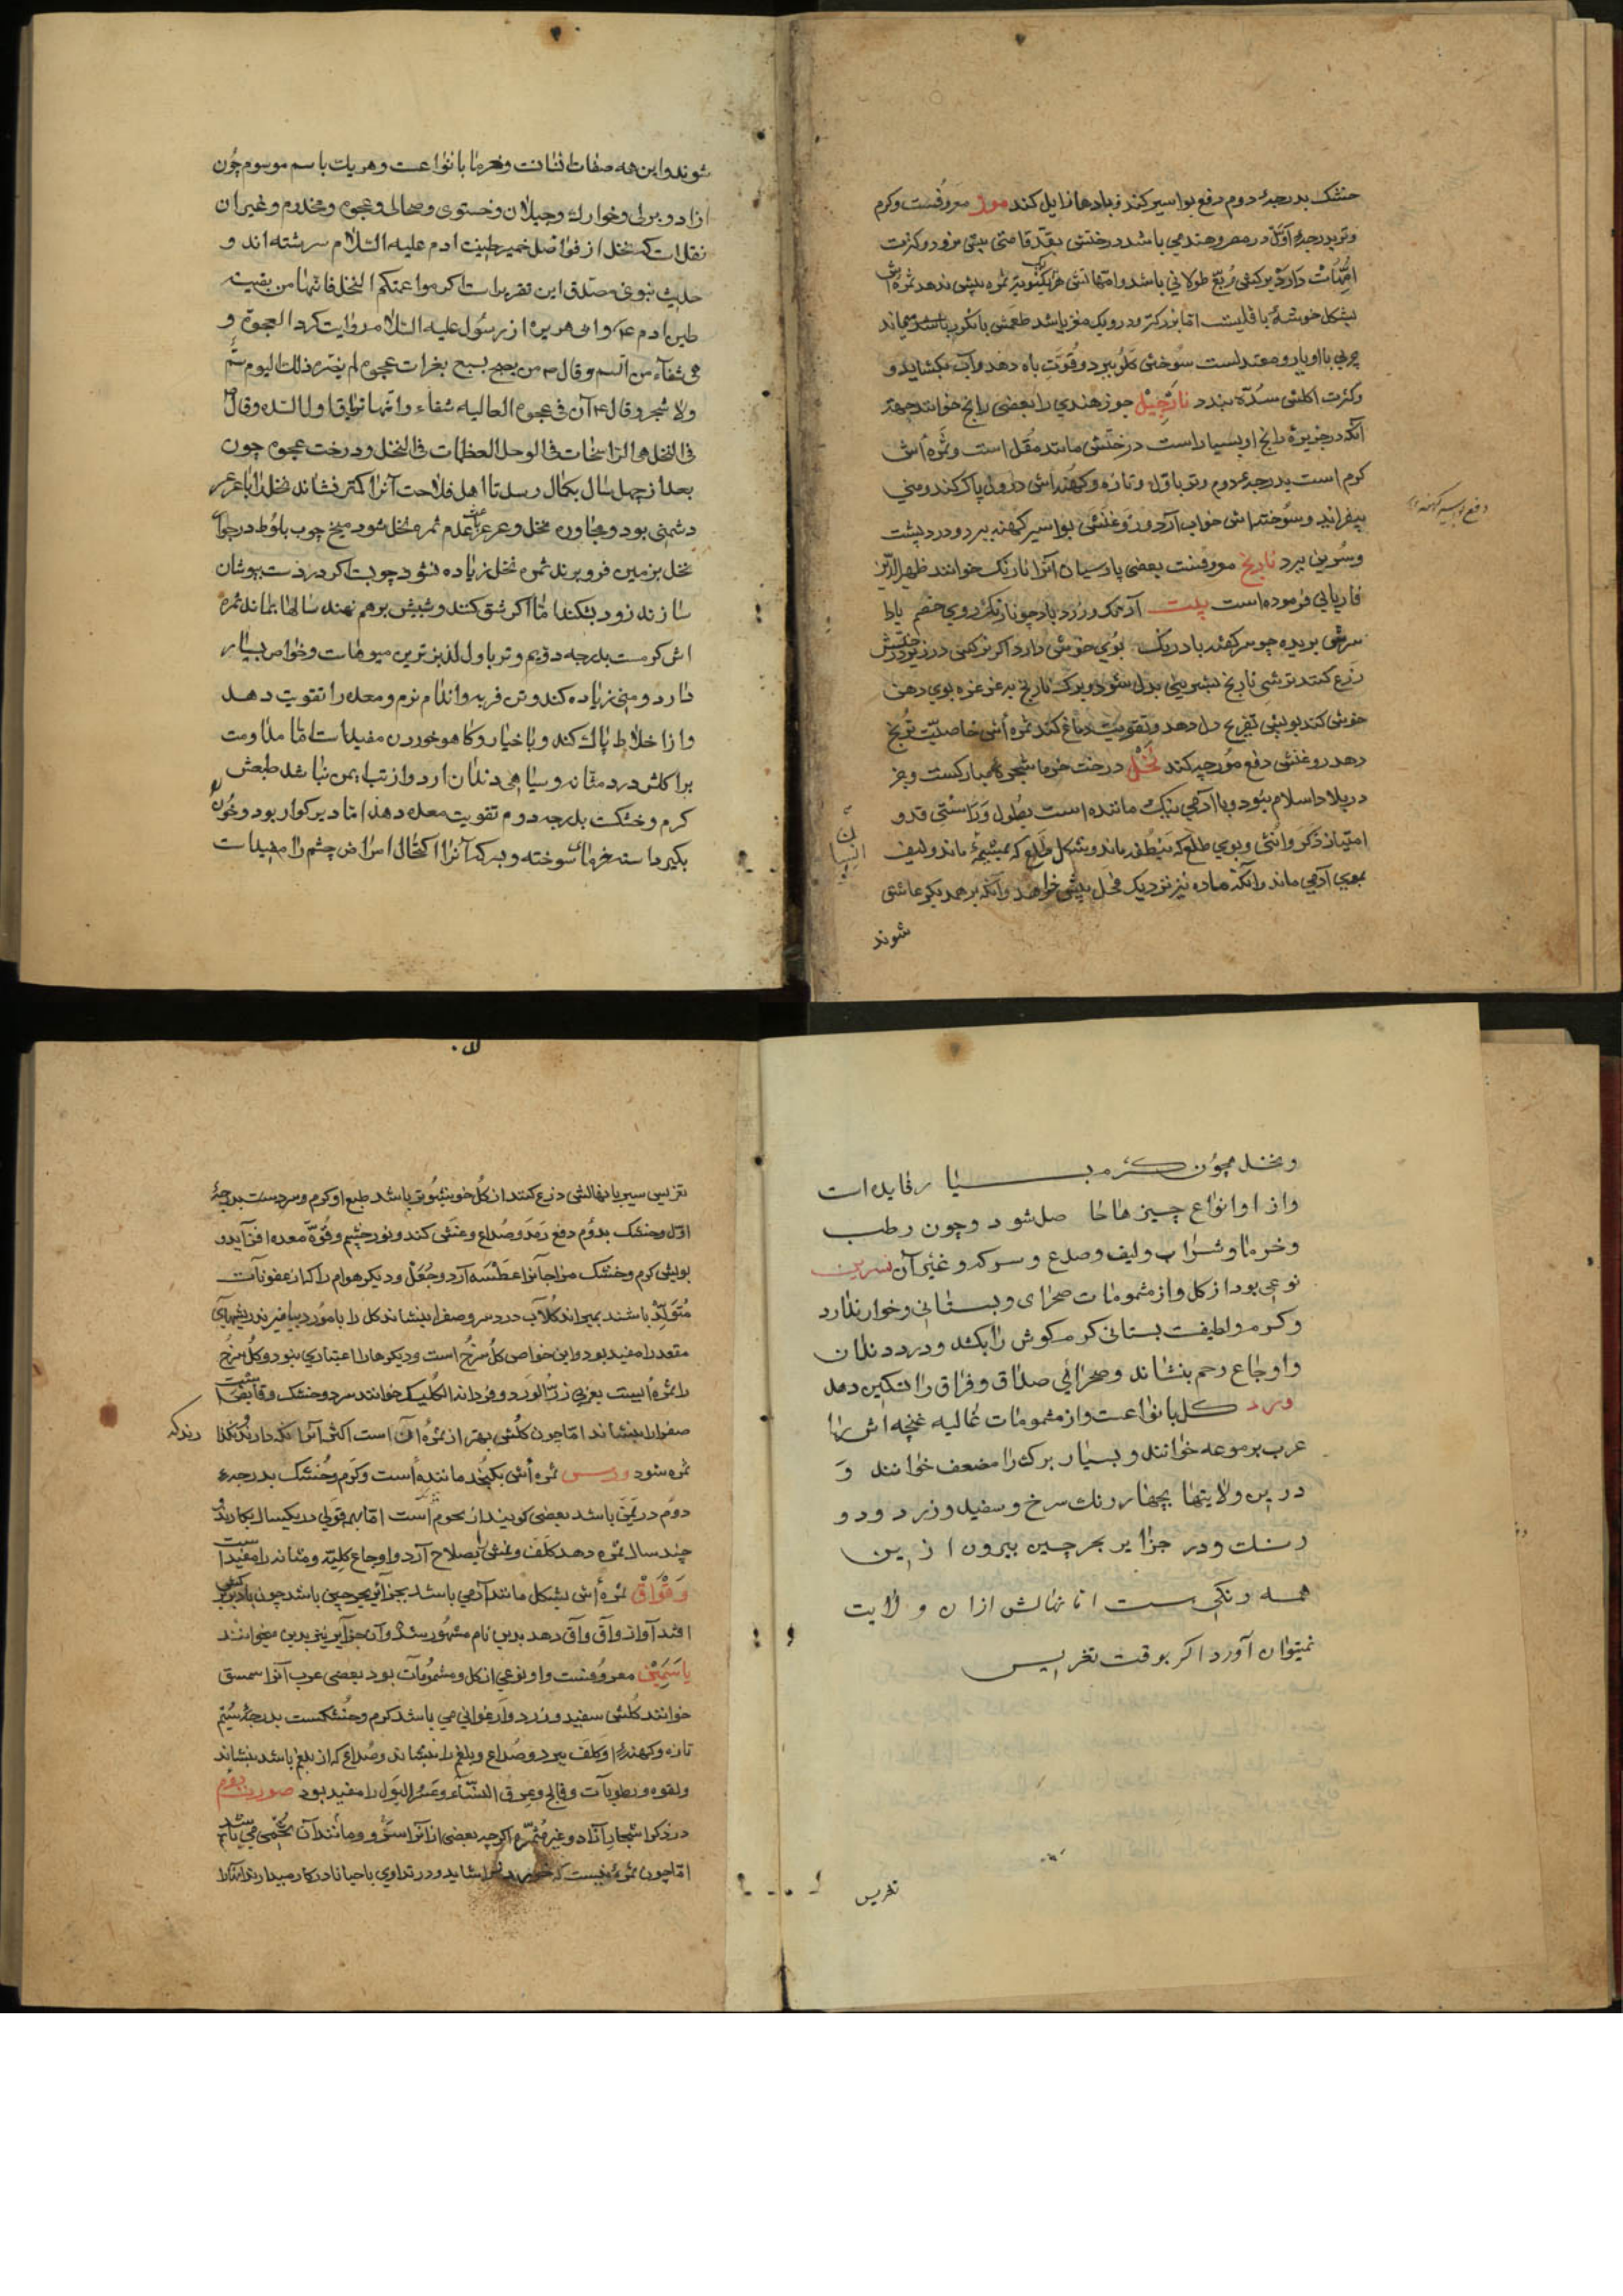 خشک بدرجهٔ دوم دفع بواسیر کند و بادها زایل کند موز معروفست و کرم
و تر بدرجهٔ اول در مصر و هند می باشد درختش بقد قامتی بیش نرود و کرت
بشکل خوشهٔ باقلیست اما بزرکتر و درو یک مغز باشد طعمش بانکور باشد
چربی با او یار و معتدلست سوختن کلو ببرد و قوت باه دهد و آب بکشاید و
کثرت اکلش سده بندد نارجیل جوز هندی را بعضی رانج خوانند جهة
آنکه در جزیرهٔ رانج او بسیار است درختش مانند مقل است و ثمره اش
کرم است بدرجهٔ دوم و تر باول و تازه و کهنه اش درون پاک کند و منی
بیفزاید و سوختنش خواب آرد و روغنش بواسیر کهنه ببرد و درد پشت
و سرین ببرد نارنج معروفست بعضی پارسیان آنرا نارنک خوانند ظهیرالدین
فاریابی فرموده است بیت
سرش بریده چو سر کهنه بادرنک بوی خوش دارد اکر نرکس در زیر درختش
زرع کنند ترشی نارنج بشیرینی بدل شود و برک نارنج بغرغره بوی دهن
خوش کند بویش تفریح دل دهد و تقویت دماغ کند ثمره اش خاصیت ترنج
دهد روغنش دفع مورچه کند نخل درخت خرما شجرهٔ مبارکست و جز
در بلاد اسلام نبود و با آدمی نیک ماننده است بطول و راستی قد و
امتیاز ذکر و انثی و بوی طلع که بنطفه ماند و شکل طلع که بمشیمه ماند و لیف
بموی آدمی ماند و آنکه ماده نیز نزدیک فحل بیش خواهد و آنکه بر همدیکر عاشق
شوند
شوند و این همه صفات انسانست و خرما بانواعست و هر یک باسم موسوم چون
ازاد و برنی و خوارک و جیلان و خستوی و صحالی و عجوه و مخدوم و غیر ان
نقلست که نخل از فواضل خمیر طینت ادم علیه السلام سرشته اند و
حدیث نبوی مصدق این تقریر است اکرموا عمتکم النخل فانها من بقیة
طین ادم و ابی هریره از رسول علیه السلام روایت کرد العجوة و
هی شفاء من السم و قال من یصبح بسبع تمرات عجوه لم یضره ذلک الیوم سم
ولا سحر و قال ان فی عجوه العالیه شفاء و انها تریاق اول البکره و قال
فی النخل هی الراسخات فی الوحل المطعمات فی المحل و درخت عجوه چون
بعد از چهل سال بکمال رسد تا اهل فلاحت آنرا کمتر نشاند نخل را با عرعر
دشمنی بود و مجاورهٔ نخل و عرعر باعث عدم ثمره نخل شود میخ چوب بلوط در حوالی
نخل بزمین فرو برند ثمره نخل زیاده شود چوبست اکر درخت بپوشان
سازند زود بشکند اما اکر شق کنند و شبش برهم نهند سالها بماند ثمره
اش کرمست بدرجه دویم و تر باول لذیزترین میوهاست و خواص بسیار
دارد و منی زیاده کند و تن فربه و اندام نرم و معده را تقویت دهد
و از اخلاط پاک کند و با خیار و کاهو خوردن مفید است اما مداومت
بر اکلش درد مثانه و سیاهی دندان ارد و از تب ایمن نباشد طبعش
کرم و خشکست بدرجه دوم تقویت معده دهد اما دیر کوار بود و خون
بکیرد استه خرمای سوخته و بسرکه آنرا اکتحال امراض چشم را مفید است
و نخل همچون کرم بسیار فایده است
و از او انواع چیزها حاصل شود و چون رطب
و خرما و شراب و لیف و صدع و سرکه و غیر آن نسرین
نوعی بود از کل و از مشمومات صحرای و بستانی و خوار ندارد
و کرم و لطیفست بستانی کرم کوش را بکشد و درد دندان
و اوجاع رحم بنشاند و صحرائی صداق و فراق را تسکین دهد
ورد کل بانواعست و از مشمومات عالیه غنچه اش را
عرب برموعه خوانند و بسیار برک را مضعف خوانند و
در این ولایتها بچهار رنک سرخ و سفید و زرد و دو
رنک و در جزایر بحر چین بیرون از این
همه رنکی است اما نهالش ازان ولایت
نمیتوان آورد اکر بوقت تغریس
تغریس
تغریس سیر با نهالش زرع کنند ان کل خوشبوی تر باشد طبع او کرم و سردست بدرجهٔ
اول و خشک بدوم دفع رمد و صداع و غشی کند و نور چشم و قوة معده افزاید و
بویش کرم و خشک مزاجانرا عطسه آرد و جعل و دیکر هوام را که از عفونات
متولد باشند بمیراند کلاب درد سر و صفرا بنشاند کل را با مورد بیامیزند ریشهای
مقعد را مفید بود و این خواص کل سرخ است و دیکرها را اعتباری نبود و کل سرخ
را ثمرهٔ ایست بعربی زر الورد و فرد انه الکلیک خوانند سرد و خشک و قابض است
صفرا را بنشاند اما چون کلش بهتر از ثمرهٔ آن است اکثر آنرا نکه دارند نکذا
رند که
ثمره شود ورس ثمره اش بکنجد ماننده است و کرم و خشک بدرجهٔ
دوم در یمن باشد بعضی کویند از نجوم است اما بهر قولی در یکسال بکارند
چند سال ثمره دهد کلف و غش بصلاح آرد و اوجاع کلیه و مثانه را مفید است
وقواق ثمره اش بشکل مانند آدمی باشد بجزائر بحر چین باشد چون باد برو
افتد آواز واق واق دهد بدین نام مشهور شد و آن جزایر نیز بدین میخوانند
یاسمین معروفست و او نوعی از کل و مشمومات بود بعضی عرب آنرا سمسق
خوانند کلش سفید و زرد و ارغوانی می باشد کرم و خشکست بدرجهٔ سیم
تازه و کهنه او کلف ببرد و صداع و بلغم را بنشاند و صداع که از بلغم باشد بنشاند
و لقوه و رطوبات و فالج و عرق النساء و عسر البول را مفید بود صورت دوم
در ذکر اشجار آزاد و غیر مثمره اکرچه بعضی از آنرا سرو و مانند آن تخمی می باشد
اما چون ثمرهٔ نیست که خوردن را شاید و در تداوی باحیانا در کار میدارند آنرا